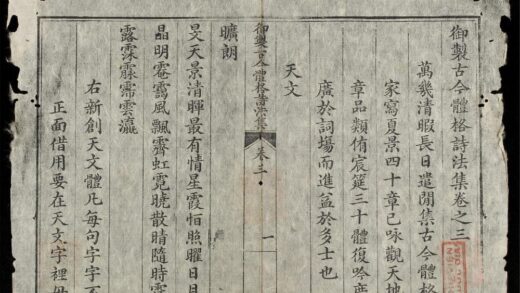 御製古今體格詩法集卷之三
萬幾清暇長日遣閒集古今體格
家寫夏景四十章已咏觀天地
章品類侑宸筵三十體復吟
廣於詞場而進益於多士也
天文
御製古今體格詩法集 卷三 一
曠朗
旻天景清暉最有情星霞恒照曜日
晶明靄風飄霽虹霓曉散晴隨時
露霂雲瀛
右新創天文體凡每句字字
正面借用要在天文字裡毋